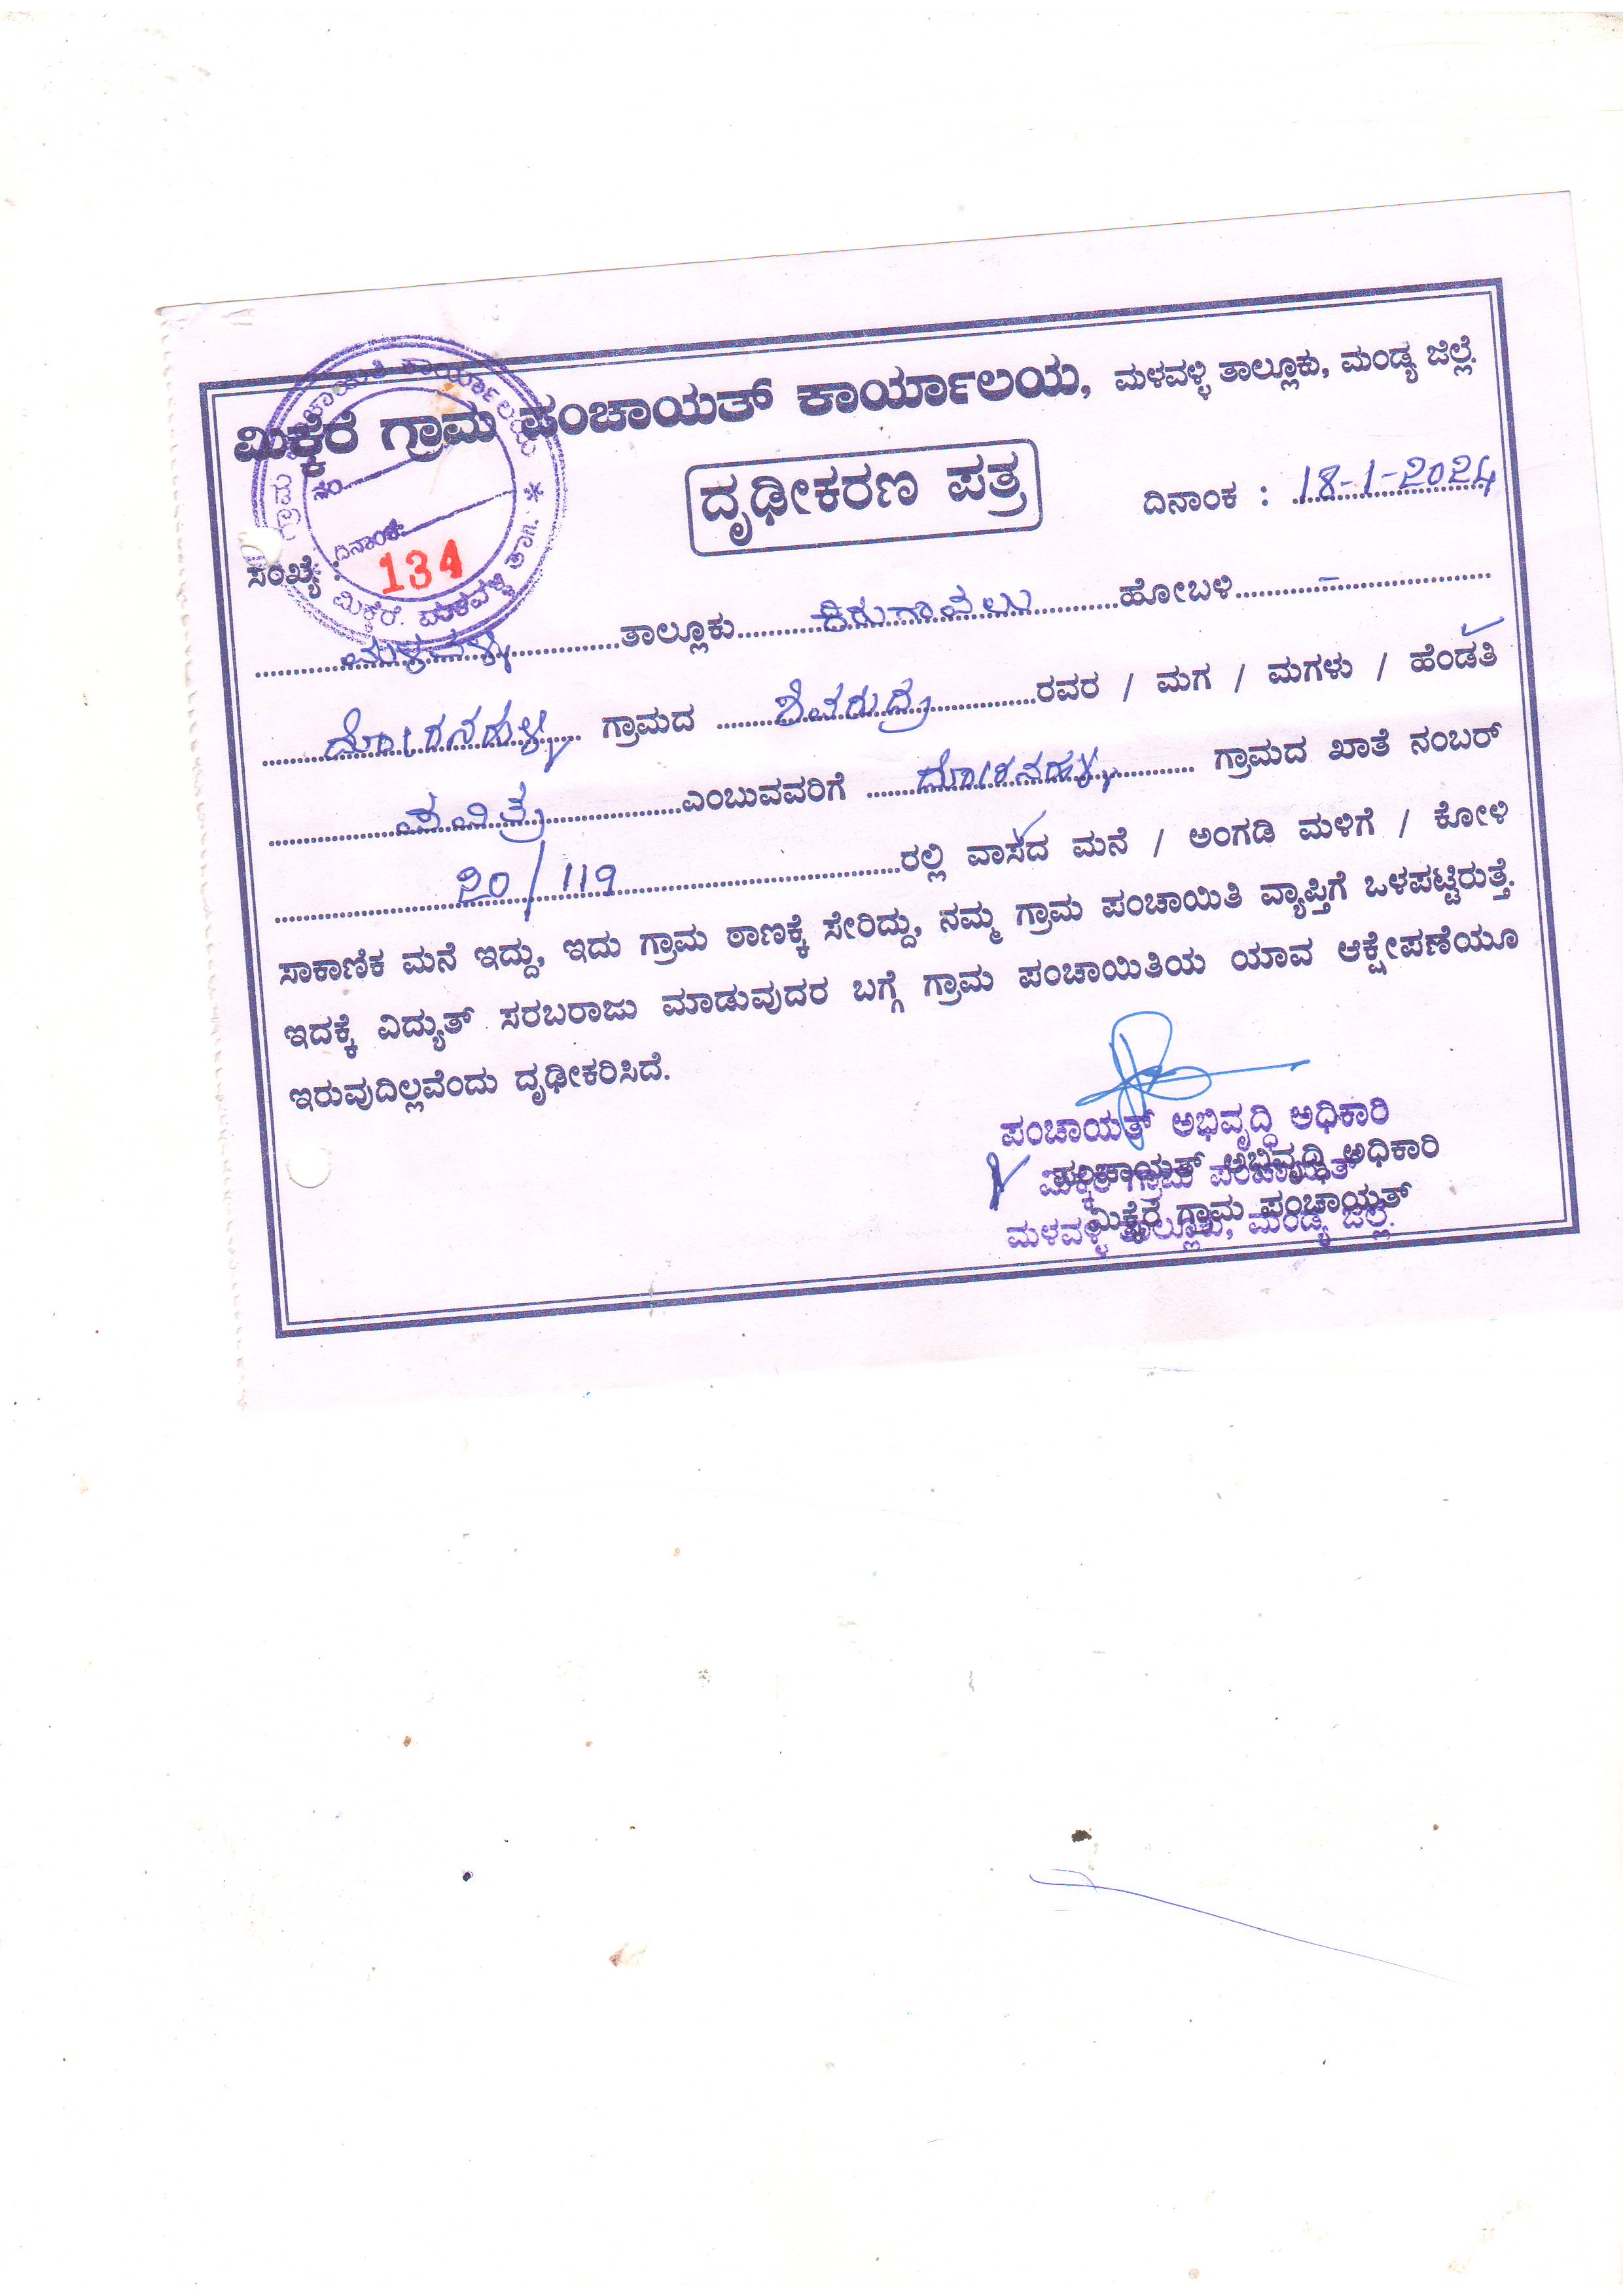 ಮಿಕ್ಕೆರೆ ಗ್ರಾಮ ಪಂಚಾಯತ್ ಕಾರ್ಯಾಲಯ, ಮಳವಳ್ಳಿ ತಾಲ್ಲೂಕು, ಮಂಡ್ಯ ಜಿಲ್ಲೆ.
ದೃಢೀಕರಣ ಪತ್ರ
ದಿನಾಂಕ : 18-1-2024
ಸಂಖ್ಯೆ : 134
ಮಳವಳ್ಳಿ ತಾಲ್ಲೂಕು ಕಿರುಗಾವಲು ಹೋಬಳಿ -
ಗ್ರಾಮದ ಶಿವರುದ್ರ ರವರ / ಮಗ / ಮಗಳು / ಹೆಂಡತಿ
ಪವಿತ್ರ ಎಂಬುವವರಿಗೆ ಗ್ರಾಮದ ಖಾತೆ ನಂಬರ್
20/119 ರಲ್ಲಿ ವಾಸದ ಮನೆ / ಅಂಗಡಿ ಮಳಿಗೆ / ಕೋಳಿ
ಸಾಕಾಣಿಕ ಮನೆ ಇದ್ದು, ಇದು ಗ್ರಾಮ ಠಾಣಕ್ಕೆ ಸೇರಿದ್ದು, ನಮ್ಮ ಗ್ರಾಮ ಪಂಚಾಯಿತಿ ವ್ಯಾಪ್ತಿಗೆ ಒಳಪಟ್ಟಿರುತ್ತೆ.
ಇದಕ್ಕೆ ವಿದ್ಯುತ್ ಸರಬರಾಜು ಮಾಡುವುದರ ಬಗ್ಗೆ ಗ್ರಾಮ ಪಂಚಾಯಿತಿಯ ಯಾವ ಆಕ್ಷೇಪಣೆಯೂ
ಇರುವುದಿಲ್ಲವೆಂದು ದೃಢೀಕರಿಸಿದೆ.
ಪಂಚಾಯತ್ ಅಭಿವೃದ್ಧಿ ಅಧಿಕಾರಿ
ಪಂಚಾಯತ್ ಅಭಿವೃದ್ಧಿ ಅಧಿಕಾರಿ
ಮಿಕ್ಕೆರೆ ಗ್ರಾಮ ಪಂಚಾಯತ್
ಮಳವಳ್ಳಿ ತಾಲ್ಲೂಕು, ಮಂಡ್ಯ ಜಿಲ್ಲೆ.